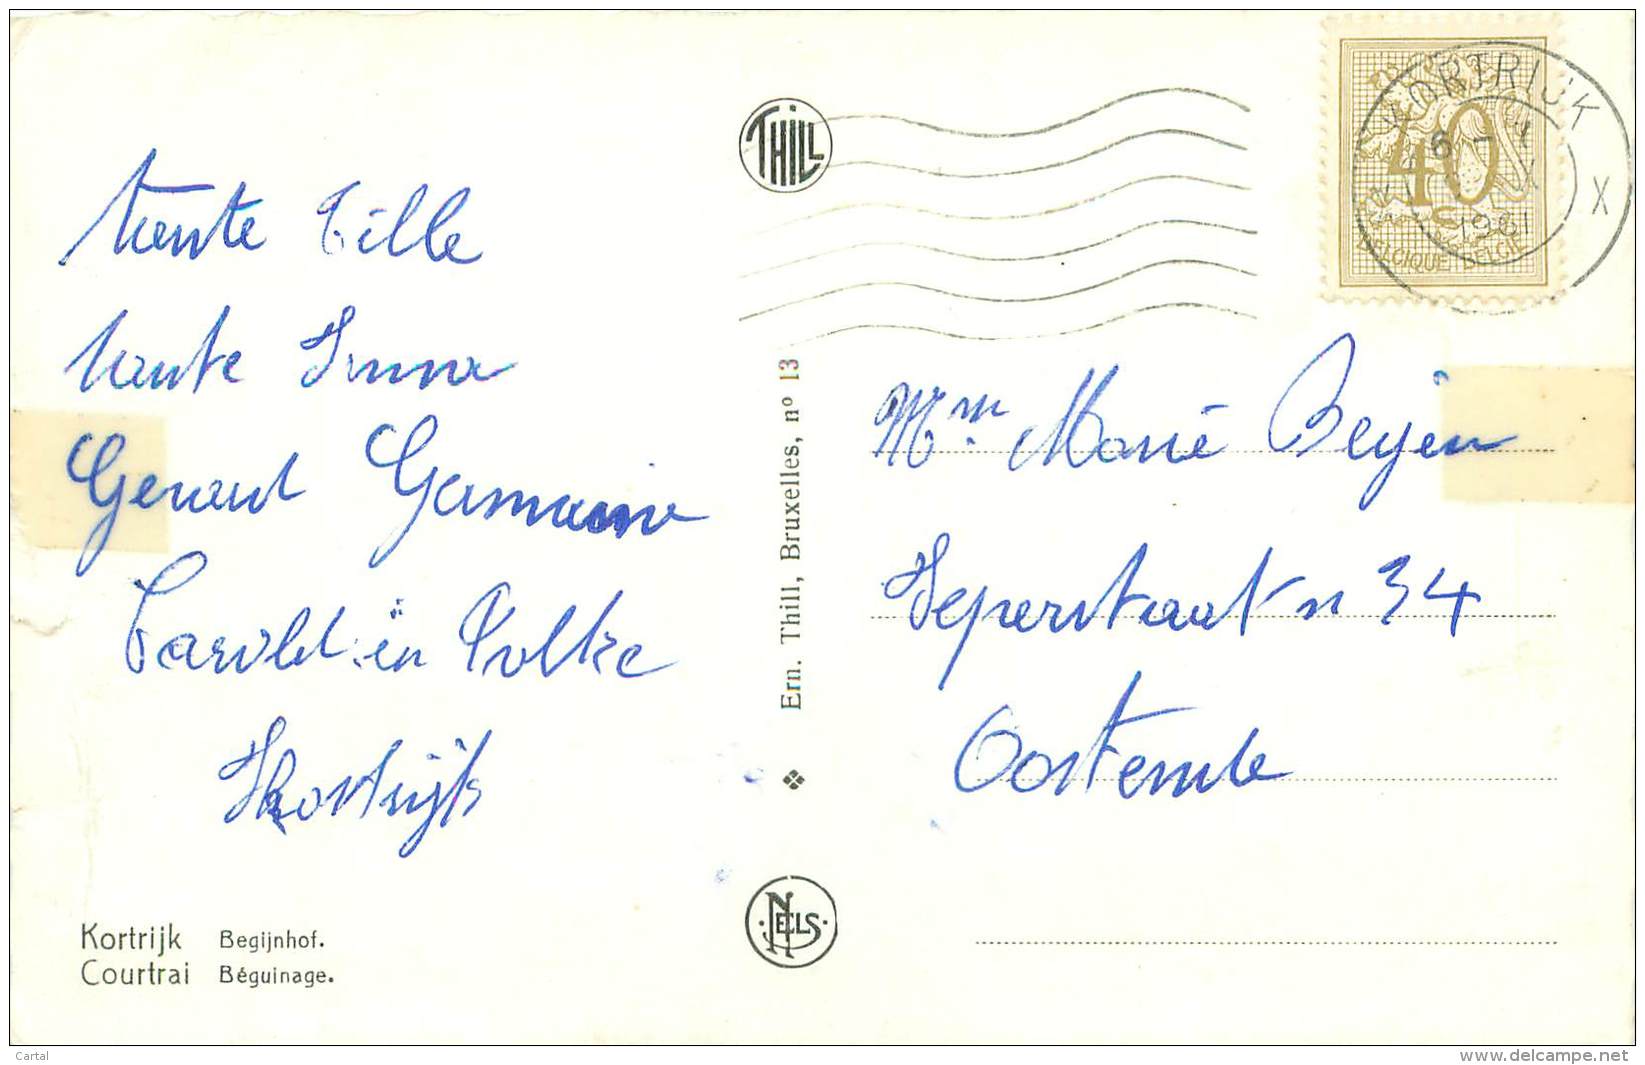 tante Cille
tante Irma
Gerard Germaine
Carold en Polke
Kortrijk
Kortrijk Begijnhof.
Courtrai Béguinage.
THILL
Ern. Thill, Bruxelles, nº 13
NELS
KORTRIJK
X
1961
40
BELGIQUE BELGIE
Mm Marie Beyen
Ieperstraat n 34
Oostende
Cartal
www.delcampe.net